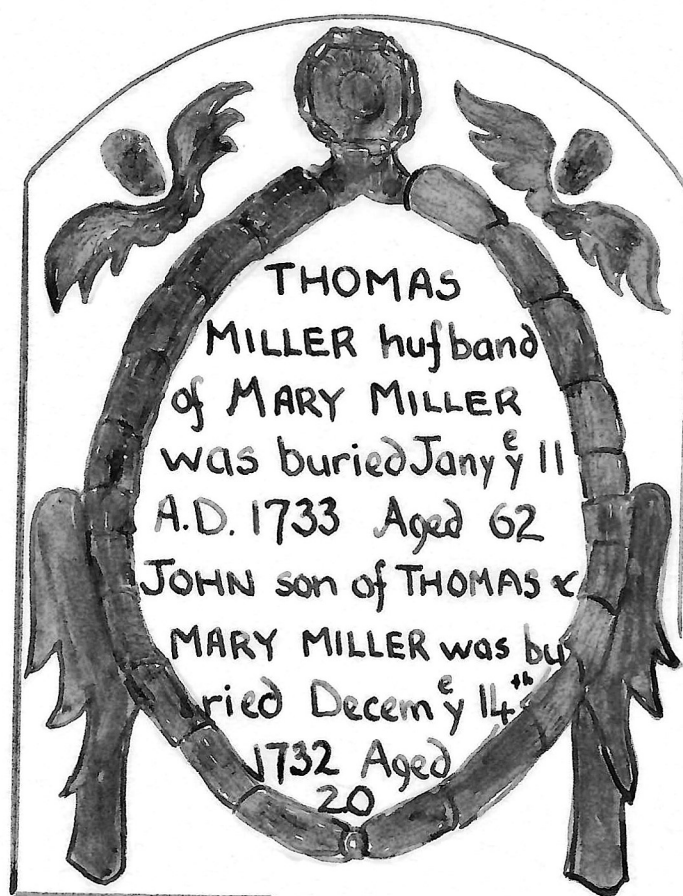 THOMAS
MILLER huſband
of MARY MILLER
was buried Jany yᵉ 11
A.D. 1733 Aged 62
JOHN son of THOMAS &
MARY MILLER was bu
ried Decem yᵉ 14th
1732 Aged
20